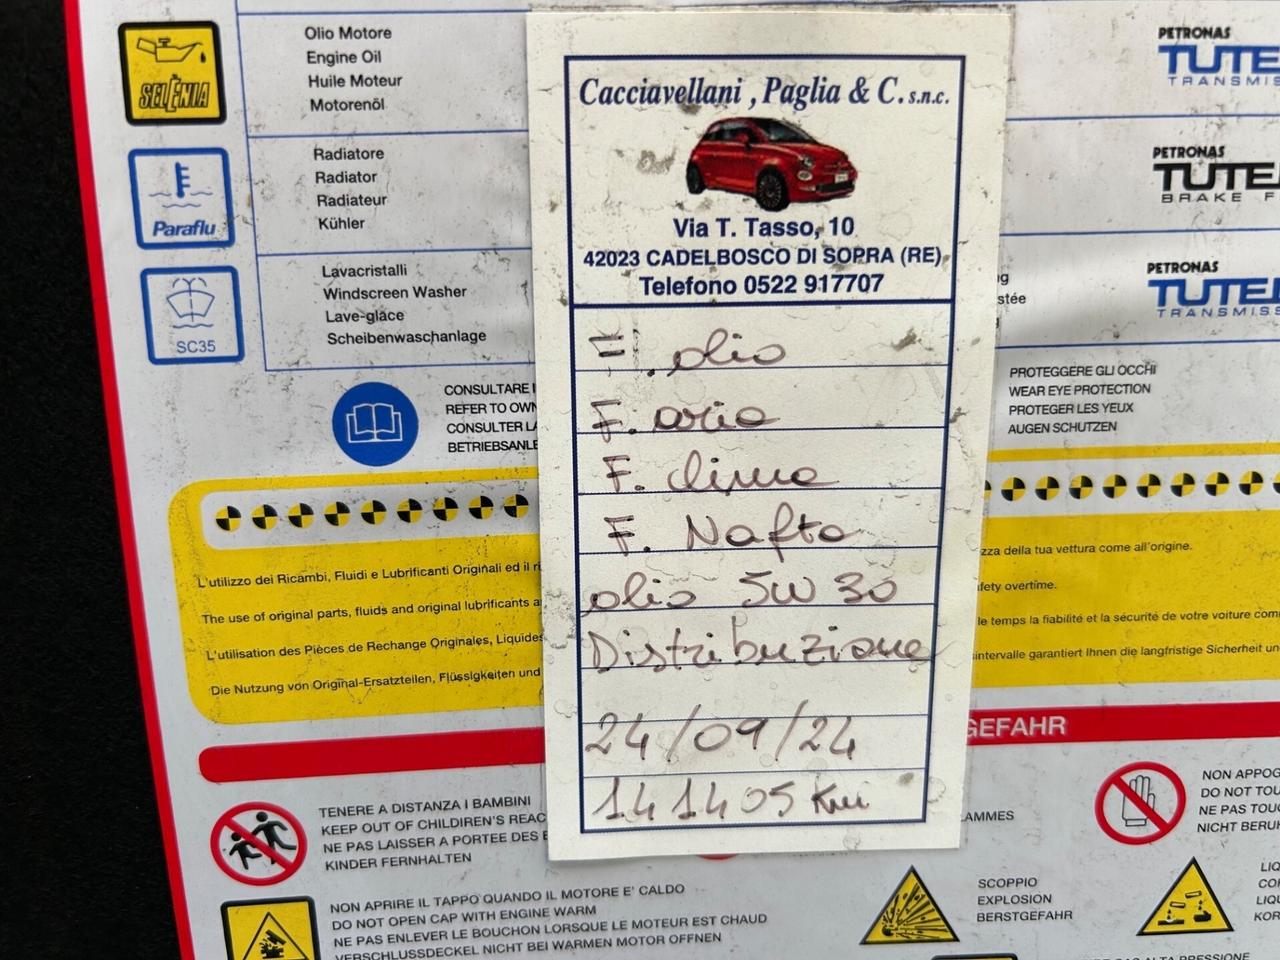 SELÈNIA
Olio Motore
Engine Oil
Huile Moteur
Motorenöl
PETRONAS
TUTE
TRANSMIS
Paraflu
Radiatore
Radiator
Radiateur
Kühler
PETRONAS
TUTE
BRAKE F
SC35
Lavacristalli
Windscreen Washer
Lave-glace
Scheibenwaschanlage
PETRONAS
TUTE
TRANSMIS
stée
CONSULTARE
REFER TO OWN
CONSULTER LA
BETRIEBSANLE
PROTEGGERE GLI OCCHI
WEAR EYE PROTECTION
PROTEGER LES YEUX
AUGEN SCHUTZEN
Cacciavellani , Paglia & C. s.n.c.
Via T. Tasso, 10
42023 CADELBOSCO DI SOPRA (RE)
Telefono 0522 917707
F. olio
F. aria
F. clima
F. Nafta
olio 5W 30
Distribuzione
24/09/24
141405 Km
L'utilizzo dei Ricambi, Fluidi e Lubrificanti Originali ed il
The use of original parts, fluids and original lubrificants
L'utilisation des Pièces de Rechange Originales, Liquides
Die Nutzung von Original-Ersatzteilen, Flüssigkeiten und
zza della tua vettura come all'origine.
fety overtime.
le temps la fiabilité et la sécurité de votre voiture com
sintervalle garantiert Ihnen die langfristige Sicherheit un
GEFAHR
TENERE A DISTANZA I BAMBINI
KEEP OUT OF CHILDREN'S REAC
NE PAS LAISSER A PORTEE DES
KINDER FERNHALTEN
AMMES
NON APPOG
DO NOT TOU
NE PAS TOUC
NICHT BERU
NON APRIRE IL TAPPO QUANDO IL MOTORE E' CALDO
DO NOT OPEN CAP WITH ENGINE WARM
NE PAS ENLEVER LE BOUCHON LORSQUE LE MOTEUR EST CHAUD
VERSCHLUSSDECKEL NICHT BEI WARMEN MOTOR OFFNEN
SCOPPIO
EXPLOSION
BERSTGEFAHR
LIQ
COR
LIQU
KOR
GAS ALTA PRESSIONE